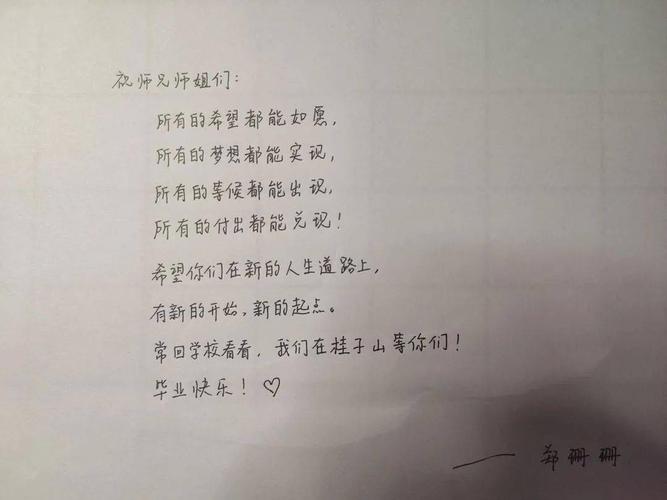 祝师兄师姐们：
所有的希望都能如愿，
所有的梦想都能实现，
所有的等候都能出现，
所有的付出都能兑现！
希望你们在新的人生道路上，
有新的开始，新的起点。
常回学校看看，我们在桂子山等你们！
毕业快乐！♡
——郑珊珊